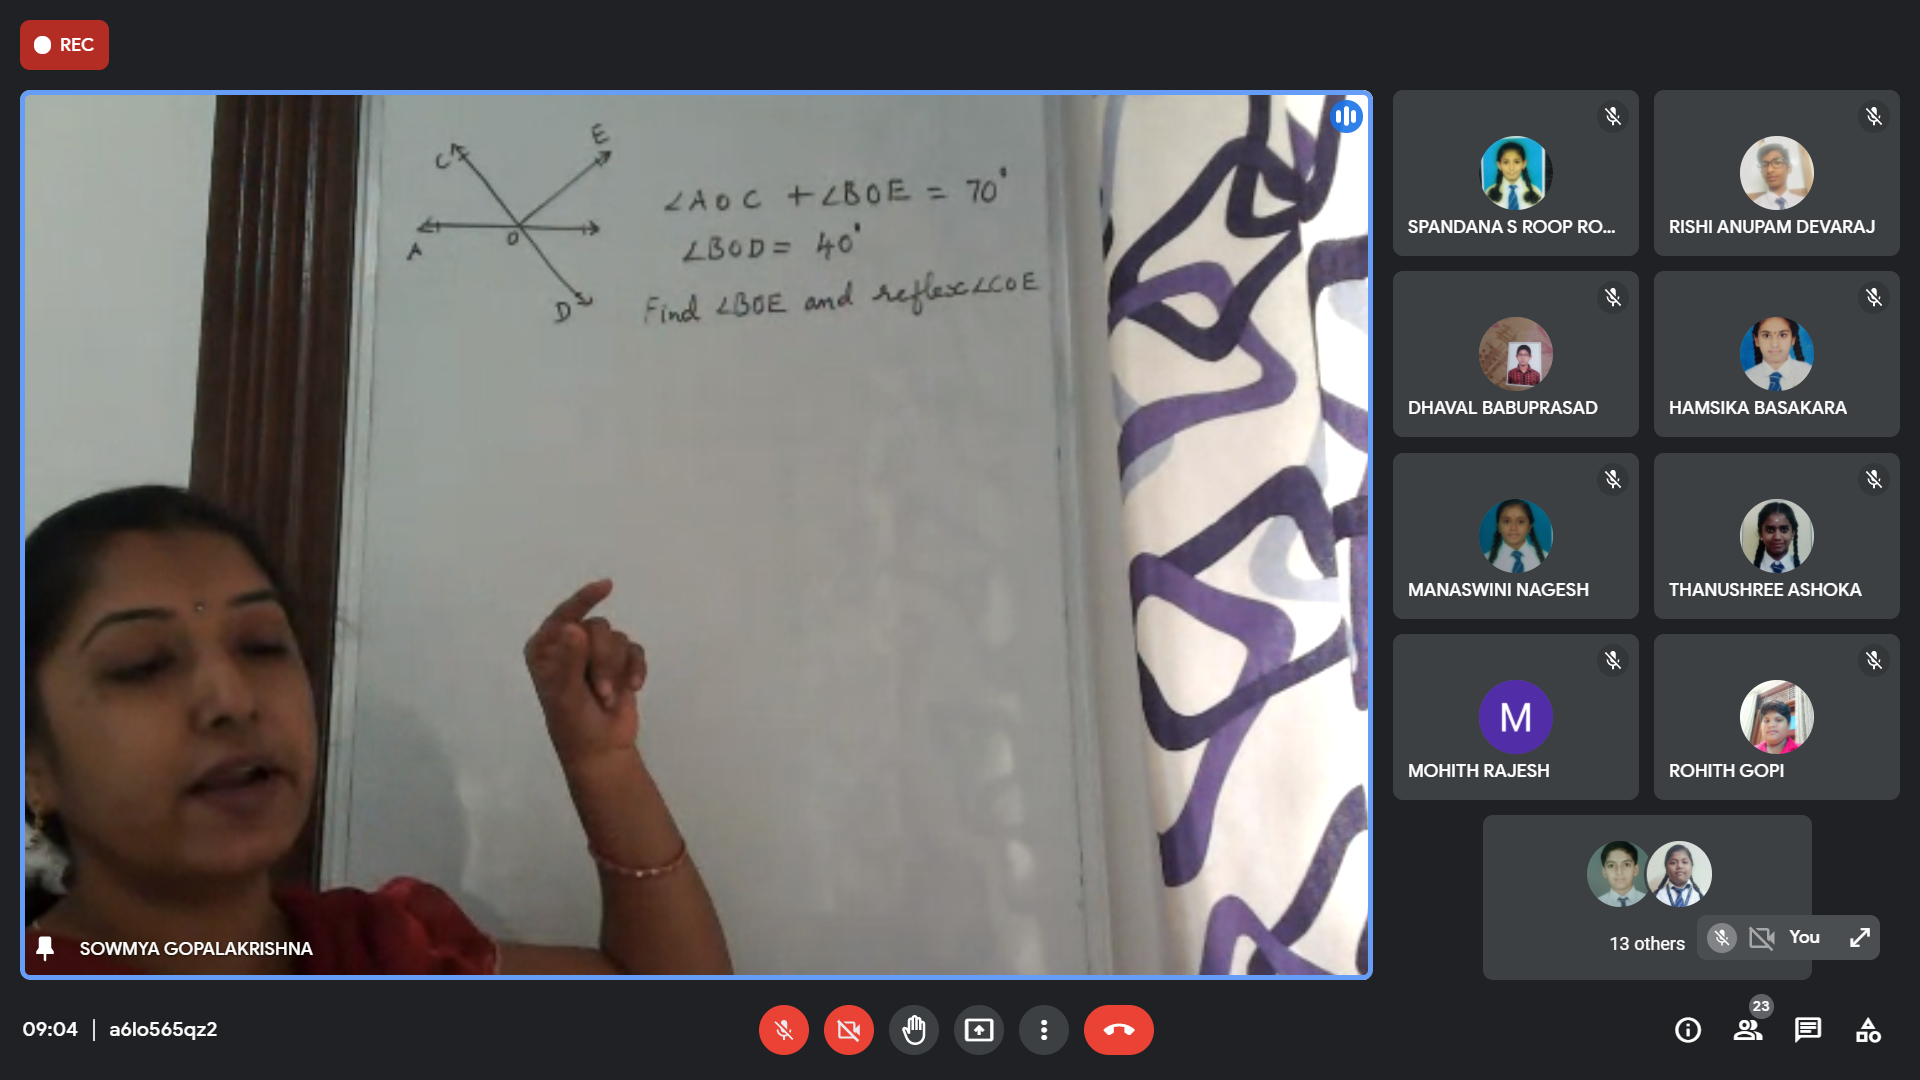 REC
C
E
A
O
D
∠AOC + ∠BOE = 70°
∠BOD = 40°
Find ∠BOE and reflex ∠COE
SOWMYA GOPALAKRISHNA
SPANDANA S ROOP RO...
RISHI ANUPAM DEVARAJ
DHAVAL BABUPRASAD
HAMSIKA BASAKARA
MANASWINI NAGESH
THANUSHREE ASHOKA
M
MOHITH RAJESH
ROHITH GOPI
13 others
You
09:04 | a6lo565qz2
23